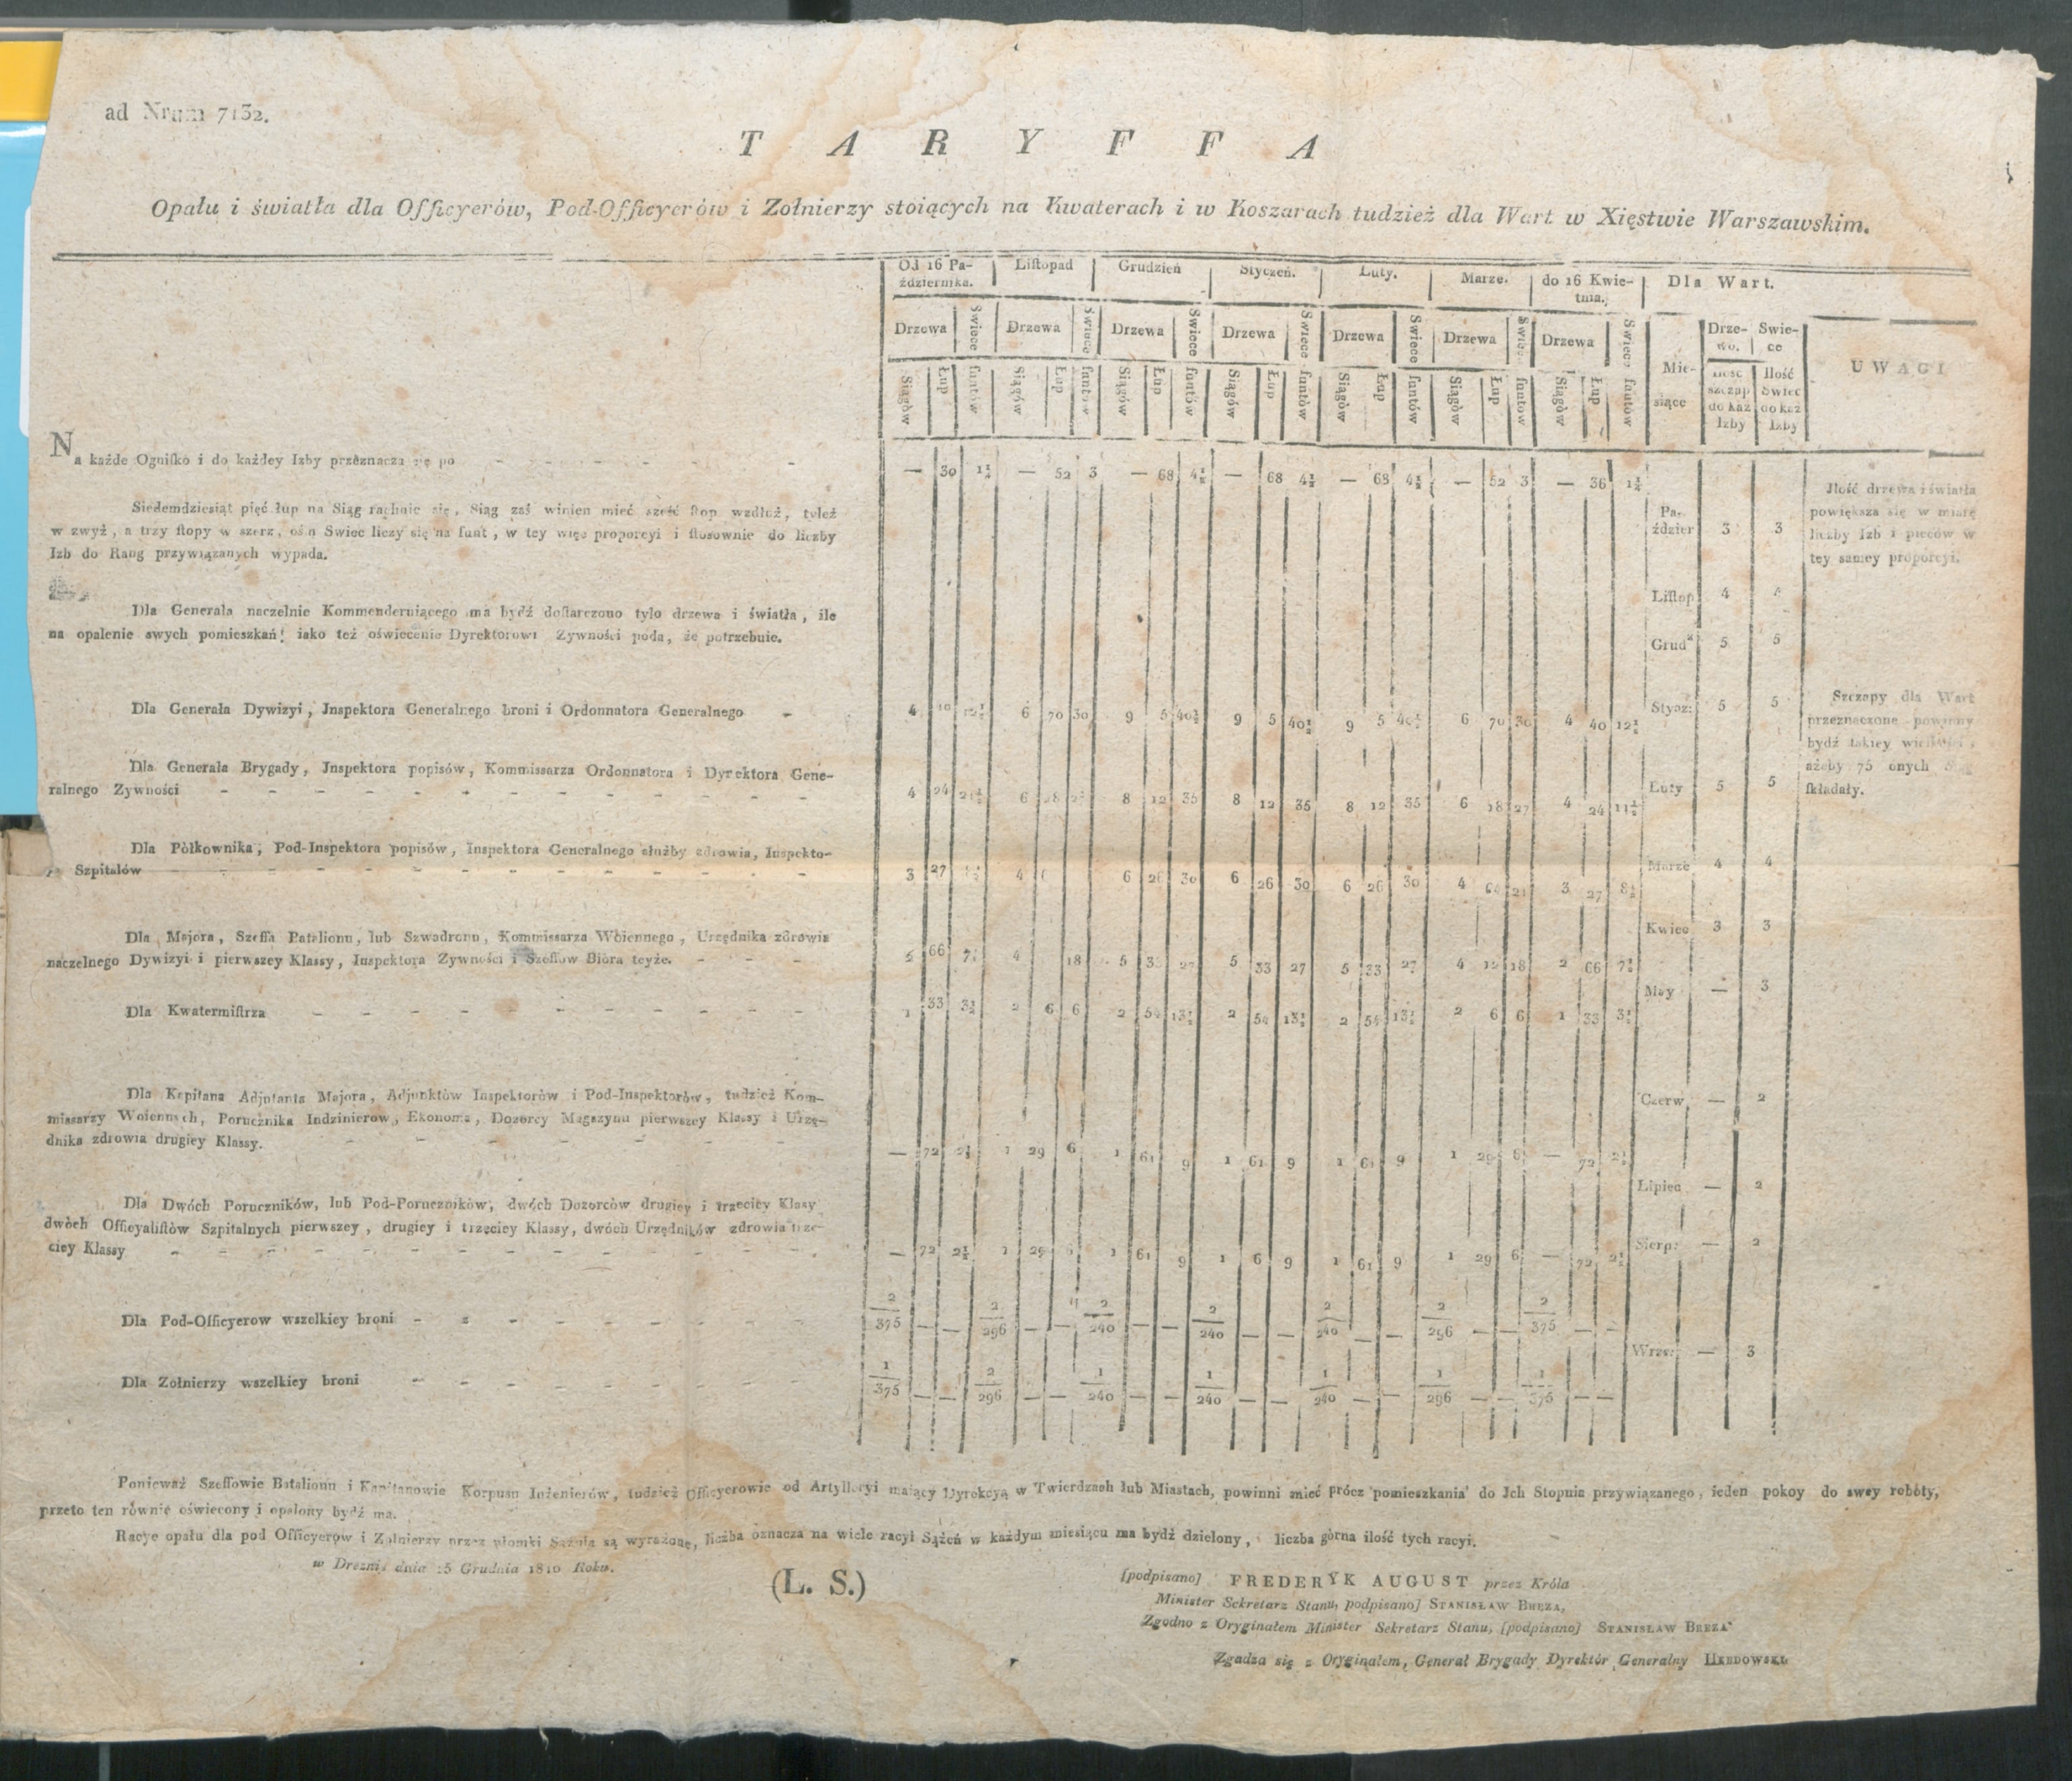 ad Nrum 7132.
T A R Y F F A
Opału i światła dla Officyerów, Pod-Officyerów i Zołnierzy stoiących na Kwaterach i w Koszarach tudzież dla Wart w Xięstwie Warszawskim.
Od 16 Pa- Liſtopad Grudzień Styczeń. Luty. Marze. do 16 Kwie- Dla Wart.
ździernika. tnia.
Drzewa Swiece Drzewa Swiece Drzewa Swiece Drzewa Swiece Drzewa Swiece Drzewa Swiece Drzewa Swiece Mie- Drze- Swie- UWAGI
siące wo. ce
Siągów Łup funtów Siągów Łup funtów Siągów Łup funtów Siągów Łup funtów Siągów Łup funtów Siągów Łup funtów Siągów Łup funtów Ilość Ilość
szczap Swiec
do każ do każ
Izby Izby
Na każde Ogniſko i do każdey Izby przeznacza się po — 30 1¼ — 52 3 — 68 4½ — 68 4½ — 68 4½ — 52 3 — 36 1¼
Siedemdziesiąt pięć łup na Siąg rachuie się, Siąg zaś winien mieć sześć ſtop wzdłuż, tyleż
w zwyż, a trzy ſtopy w szerz, ośm Swiec liczy się na funt, w tey więc proporcyi i ſtosownie do liczby
Izb do Rang przywiązanych wypada.
Dla Generała naczelnie Kommenderuiącego ma bydź doſtarczono tylo drzewa i światła, ile
na opalenie swych pomieszkań! iako też oświecenie Dyrektorowi Zywności poda, że potrzebuie.
Dla Generała Dywizyi, Jnspektora Generalnego broni i Ordonnatora Generalnego - 4 10 12½ 6 70 30 9 5 40½ 9 5 40½ 9 5 40½ 6 70 30 4 40 12½
Dla Generała Brygady, Jnspektora popisów, Kommissarza Ordonnatora i Dyrektora Gene-
ralnego Zywności 4 24 6 8 12 35 8 12 35 8 12 35 6 18 27 4 24 11½
Dla Półkownika, Pod-Inspektora popisów, Inspektora Generalnego służby zdrowia, Inspekto-
Szpitalów 3 27 4 6 26 30 6 26 30 6 26 30 4 21 3 27 8½
Dla Majora, Szeffa Batalionu, lub Szwadronu, Kommissarza Woiennego, Urzędnika zdrowia
naczelnego Dywizyi i pierwszey Klassy, Inspektora Zywności i Szeffow Bióra teyże. 2 66 7½ 4 18 5 33 27 5 33 27 5 33 27 4 12 18 2 66 7½
Dla Kwatermiſtrza 1 33 3½ 2 6 6 2 54 13½ 2 54 13½ 2 54 13½ 2 6 6 1 33 3½
Dla Kapitana Adjutanta Majora, Adjunktów Inspektorów i Pod-Inspektorów, tudzież Kom-
missarzy Woiennych, Porucznika Indzinierow, Ekonoma, Dozorcy Magazynu pierwszey Klassy i Urzę-
dnika zdrowia drugiey Klassy. — 72 2½ 1 29 6 1 61 9 1 61 9 1 61 9 1 29 8 — 72 2½
Dla Dwóch Poruczników, lub Pod-Poruczników, dwóch Dozorców drugiey i trzeciey Klasy
dwóch Officyaliſtów Szpitalnych pierwszey, drugiey i trzeciey Klassy, dwóch Urzędników zdrowia trze-
ciey Klassy — 72 2½ 1 29 6 1 61 9 1 6 9 1 61 9 1 29 6 — 72 2½
Dla Pod-Officyerow wszelkiey broni 2/375 — — 2/296 — — 2/240 — — 2/240 — — 2/240 — — 2/296 — — 2/375 — —
Dla Zołnierzy wszelkiey broni 1/375 — — 2/296 — — 1/240 — — 1/240 — — 1/240 — — 1/296 — — 1/375 — —
Pa-
ździer 3 3
Liſtop 4 4
Grud 5 5
Stycz: 5 5
Luty 5 5
Marze 4 4
Kwiec 3 3
May — 3
Czerw. — 2
Lipiec — 2
Sierp: — 2
Wrze: — 3
Jlość drzewa i światła
powiększa się w miarę
liczby Izb i pieców w
tey samey proporcyi.
Szczapy dla Wart
przeznaczone powinny
bydź takiey wielkości,
ażeby 75 onych Siąg
ſkładały.
Ponieważ Szeffowie Batalionu i Kapitanowie Korpusu Inżenierów, tudzież Officyerowie od Artylleryi maiący Dyrekcyą w Twierdzach lub Miastach, powinni mieć prócz pomieszkania do Jch Stopnia przywiązanego, ieden pokoy do swey roboty,
przeto ten równie oświecony i opalony bydź ma.
Racye opału dla pod Officyerów i Zołnierzy przez ułomki Sążnia są wyrażone, liczba oznacza na wiele racyi Sążeń w każdym miesiącu ma bydź dzielony, liczba górna ilość tych racyi.
w Dreznie dnia 15 Grudnia 1810 Roku.
(L. S.)
[podpisano] FREDERYK AUGUST przez Króla
Minister Sekretarz Stanu, podpisano] STANISŁAW BREZA,
Zgodno z Oryginałem Minister Sekretarz Stanu, [podpisano] STANISŁAW BREZA
Zgadza się z Oryginałem, Generał Brygady Dyrektór Generalny HEBDOWSKI.